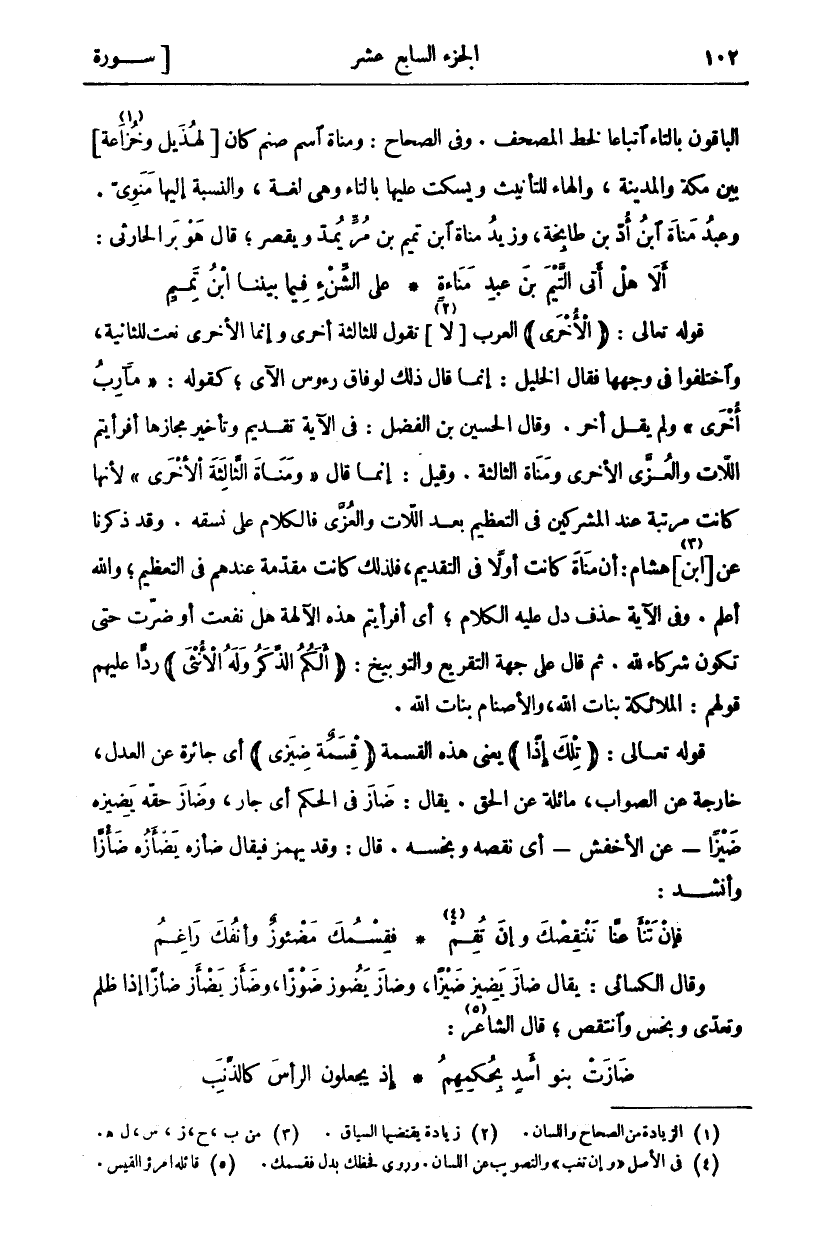 ١٠٢ الجزء السابع عشر [ ســورة
الباقون بالتاء ٱتباعا لخط المصحف . وفى الصحاح : ومناة ٱسم صنم كان [ لهُذَيل وخُزاعة ](١)
بين مكة والمدينة ، والهاء للتأنيث ويسكت عليها بالتاء وهى لغــة ، والنسبة إليها مَنَوِىّ .
وعبدُ مَناَة ٱبنُ أُدّ بن طابِخة، وزيدُ مناة ٱبن تميم بن مُرٍّ يُمــد ويقصر ؛ قال هَوْ بَر الحارثى :
أَلَا هلْ أَتَى التَّيْمَ بنَ عبدِ مَنَاءةٍ * على الشِّنْءِ فِيما بيننــا ابْنُ تَمِــيمِ
قوله تعالى : ﴿ الْأُخْرَى ﴾ العرب [ لا ](٢) تقول للثالثة أخرى وإنما الأخرى نعت للثانية،
وٱختلفوا فى وجهها فقال الخليل : إنمــا قال ذلك لوفاق رءوس الآى ؛ كقوله : « مَآرِبُ
أُخْرَى » ولم يقــل أخر . وقال الحسين بن الفضل : فى الآية تقــديم وتأخير مجازها أفرأيتم
اللّات والعُــزَّى الأخرى ومَنَاة الثالثة . وقيل : إنمــا قال « ومَنَــاةَ الثَّالِثَةَ الْأُخْرَى » لأنها
كانت مرتبة عند المشركين فى التعظيم بعــد اللّات والعُزَّى فالكلام على نسقه . وقد ذكرنا
عن [ابن](٣) هشام: أن مَنَاةَ كانت أولًا فى التقديم، فلذلك كانت مقدّمة عندهم فى التعظيم؛ والله
أعلم . وفى الآية حذف دل عليه الكلام ؛ أى أفرأيتم هذه الآلهة هل نفعت أو ضرّت حتى
تكون شركاء لله . ثم قال على جهة التقريع والتوبيخ : ﴿ أَلَكُمُ الذَّكَرُ وَلَهُ الْأُنْثَى ﴾ ردًّا عليهم
قولهم : الملائكة بنات الله، والأصنام بنات الله .
قوله تعــالى : ﴿ تِلْكَ إِذًا ﴾ يعنى هذه القسمة ﴿ قِسْمَةٌ ضِيزَى ﴾ أى جائرة عن العدل،
خارجة عن الصواب، مائلة عن الحق . يقال : ضَازَ فى الحكم أى جار ، وضَازَ حقّه يَضِيزه
ضَيْزًا – عن الأخفش – أى نقصه وبخســه . قال : وقد يهمز فيقال ضأزه يَضْأَزُه ضَأْزًا
وأنشــد :
فإنْ تَنْأَ عنَّا نَنْتَقِصْكَ وإنْ تُقِمْ(٤) * فقِسْــمُكَ مَضْئوزٌ وأنفُكَ رَاغِــمُ
وقال الكسائى : يقال ضازَ يَضِيز ضَيْزًا، وضازَ يَضُوز ضَوْزًا، وضَأَز يَضْأَز ضأزًا إذا ظلم
وتعدّى وبخس وٱنتقص ؛ قال الشاعر(٥) :
ضَازَتْ بنو أَسَدٍ بِحُكْمِهِمُ * إذ يجعلون الرأسَ كالذَّنَبِ
(١) الزيادة من الصحاح واللسان . (٢) زيادة يقتضيها السياق . (٣) من ب ، ح، ز ، س، ل ه.
(٤) فى الأصل «وإن تغب» والتصويب عن اللسان . وروى فحظك بدل فقسمك . (٥) قائله امرؤ القيس .